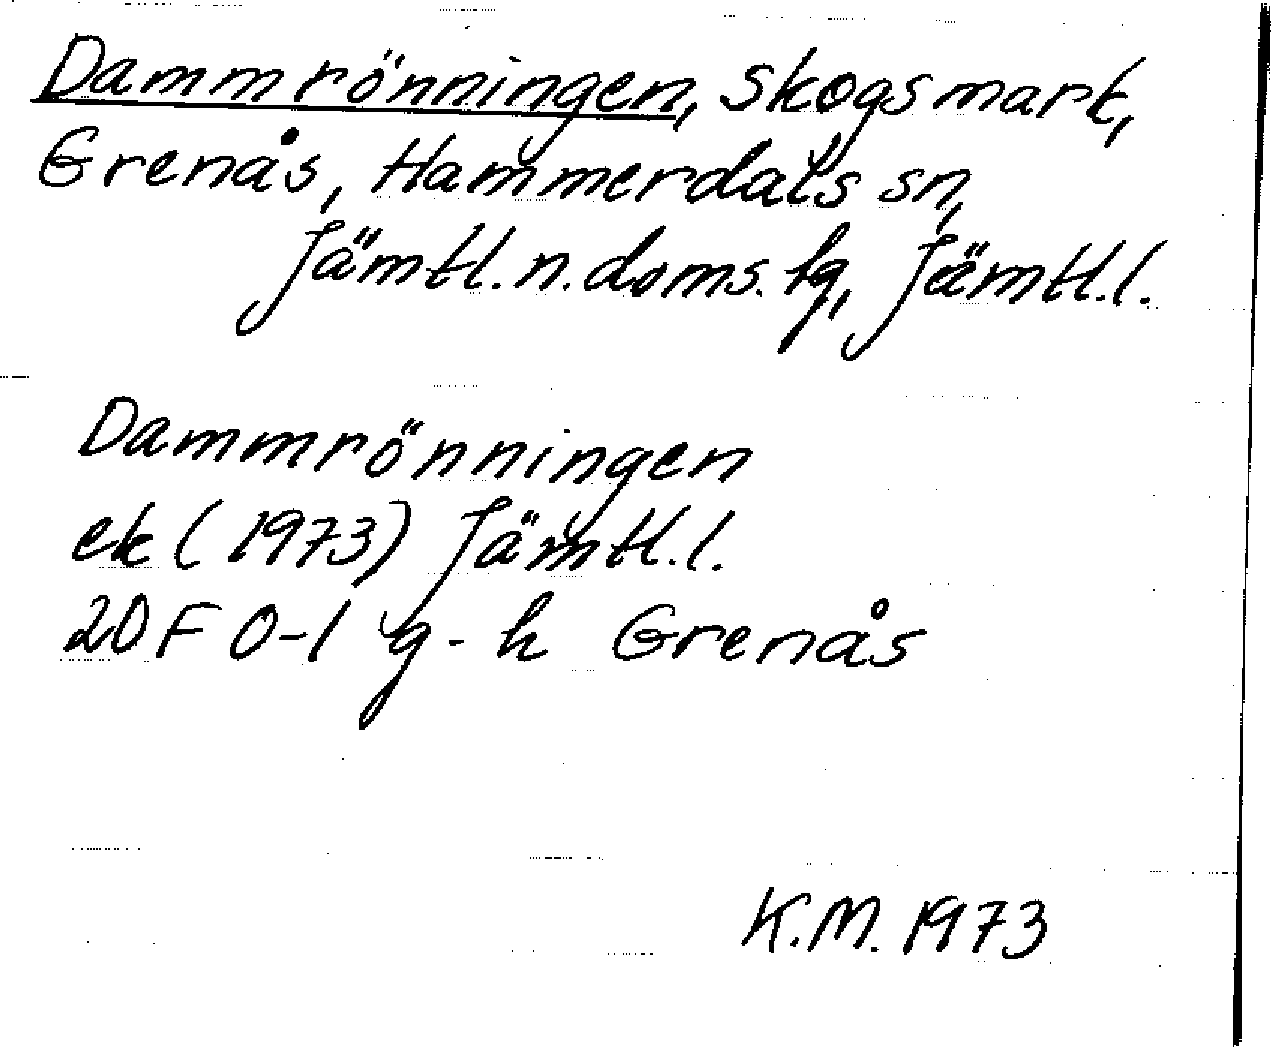 Dammrönningen, skogsmark,
Grenås, Hammerdals sn,
Jämtl. n. doms. fg, Jämtl. l.
Dammrönningen
ek (1973) Jämtl. l.
20F 0-1 g-h Grenås
K.M. 1973